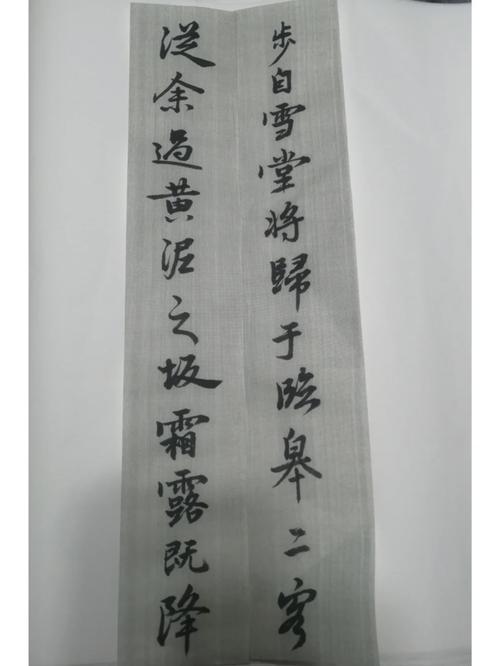 步自雪堂将歸于臨皋二客
從余過黄泥之坂霜露既降